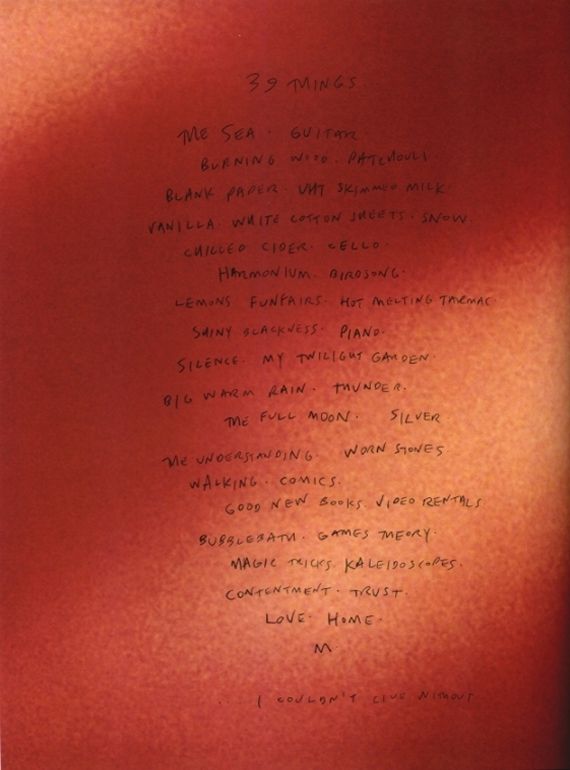 39 THINGS.
THE SEA. GUITAR.
BURNING WOOD. PATCHOULI.
BLANK PAPER. UHT SKIMMED MILK.
VANILLA. WHITE COTTON SHEETS. SNOW.
CHILLED CIDER. CELLO.
HARMONIUM. BIRDSONG.
LEMONS FUNFAIRS. HOT MELTING TARMAC
SHINY BLACKNESS. PIANO.
SILENCE. MY TWILIGHT GARDEN.
BIG WARM RAIN. THUNDER.
THE FULL MOON. SILVER.
THE UNDERSTANDING. WORN STONES
WALKING. COMICS.
GOOD NEW BOOKS. VIDEO RENTALS
BUBBLEBATH. GAMES THEORY.
MAGIC TRICKS. KALEIDOSCOPES.
CONTENTMENT. TRUST.
LOVE. HOME.
M.
... I COULDN'T LIVE WITHOUT